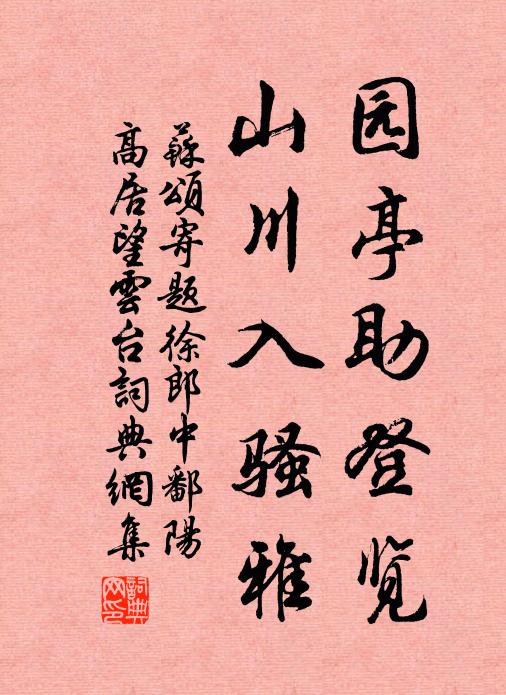 园亭助登览
山川入骚雅
蘇頌寄题徐郎中鄱陽
高居望雲台詞典網集
詞典网印